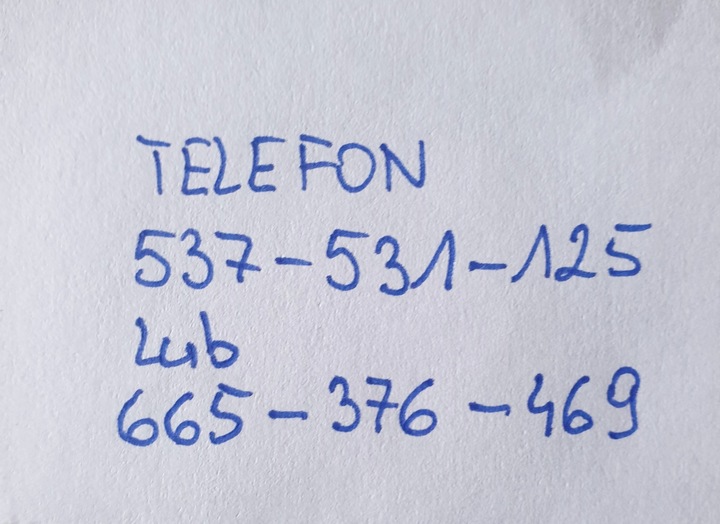 TELEFON
537-531-125
Lub
665-376-469